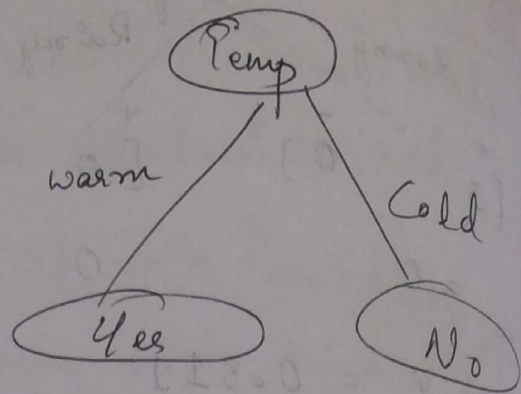 Temp
warm
Cold
Yes
No